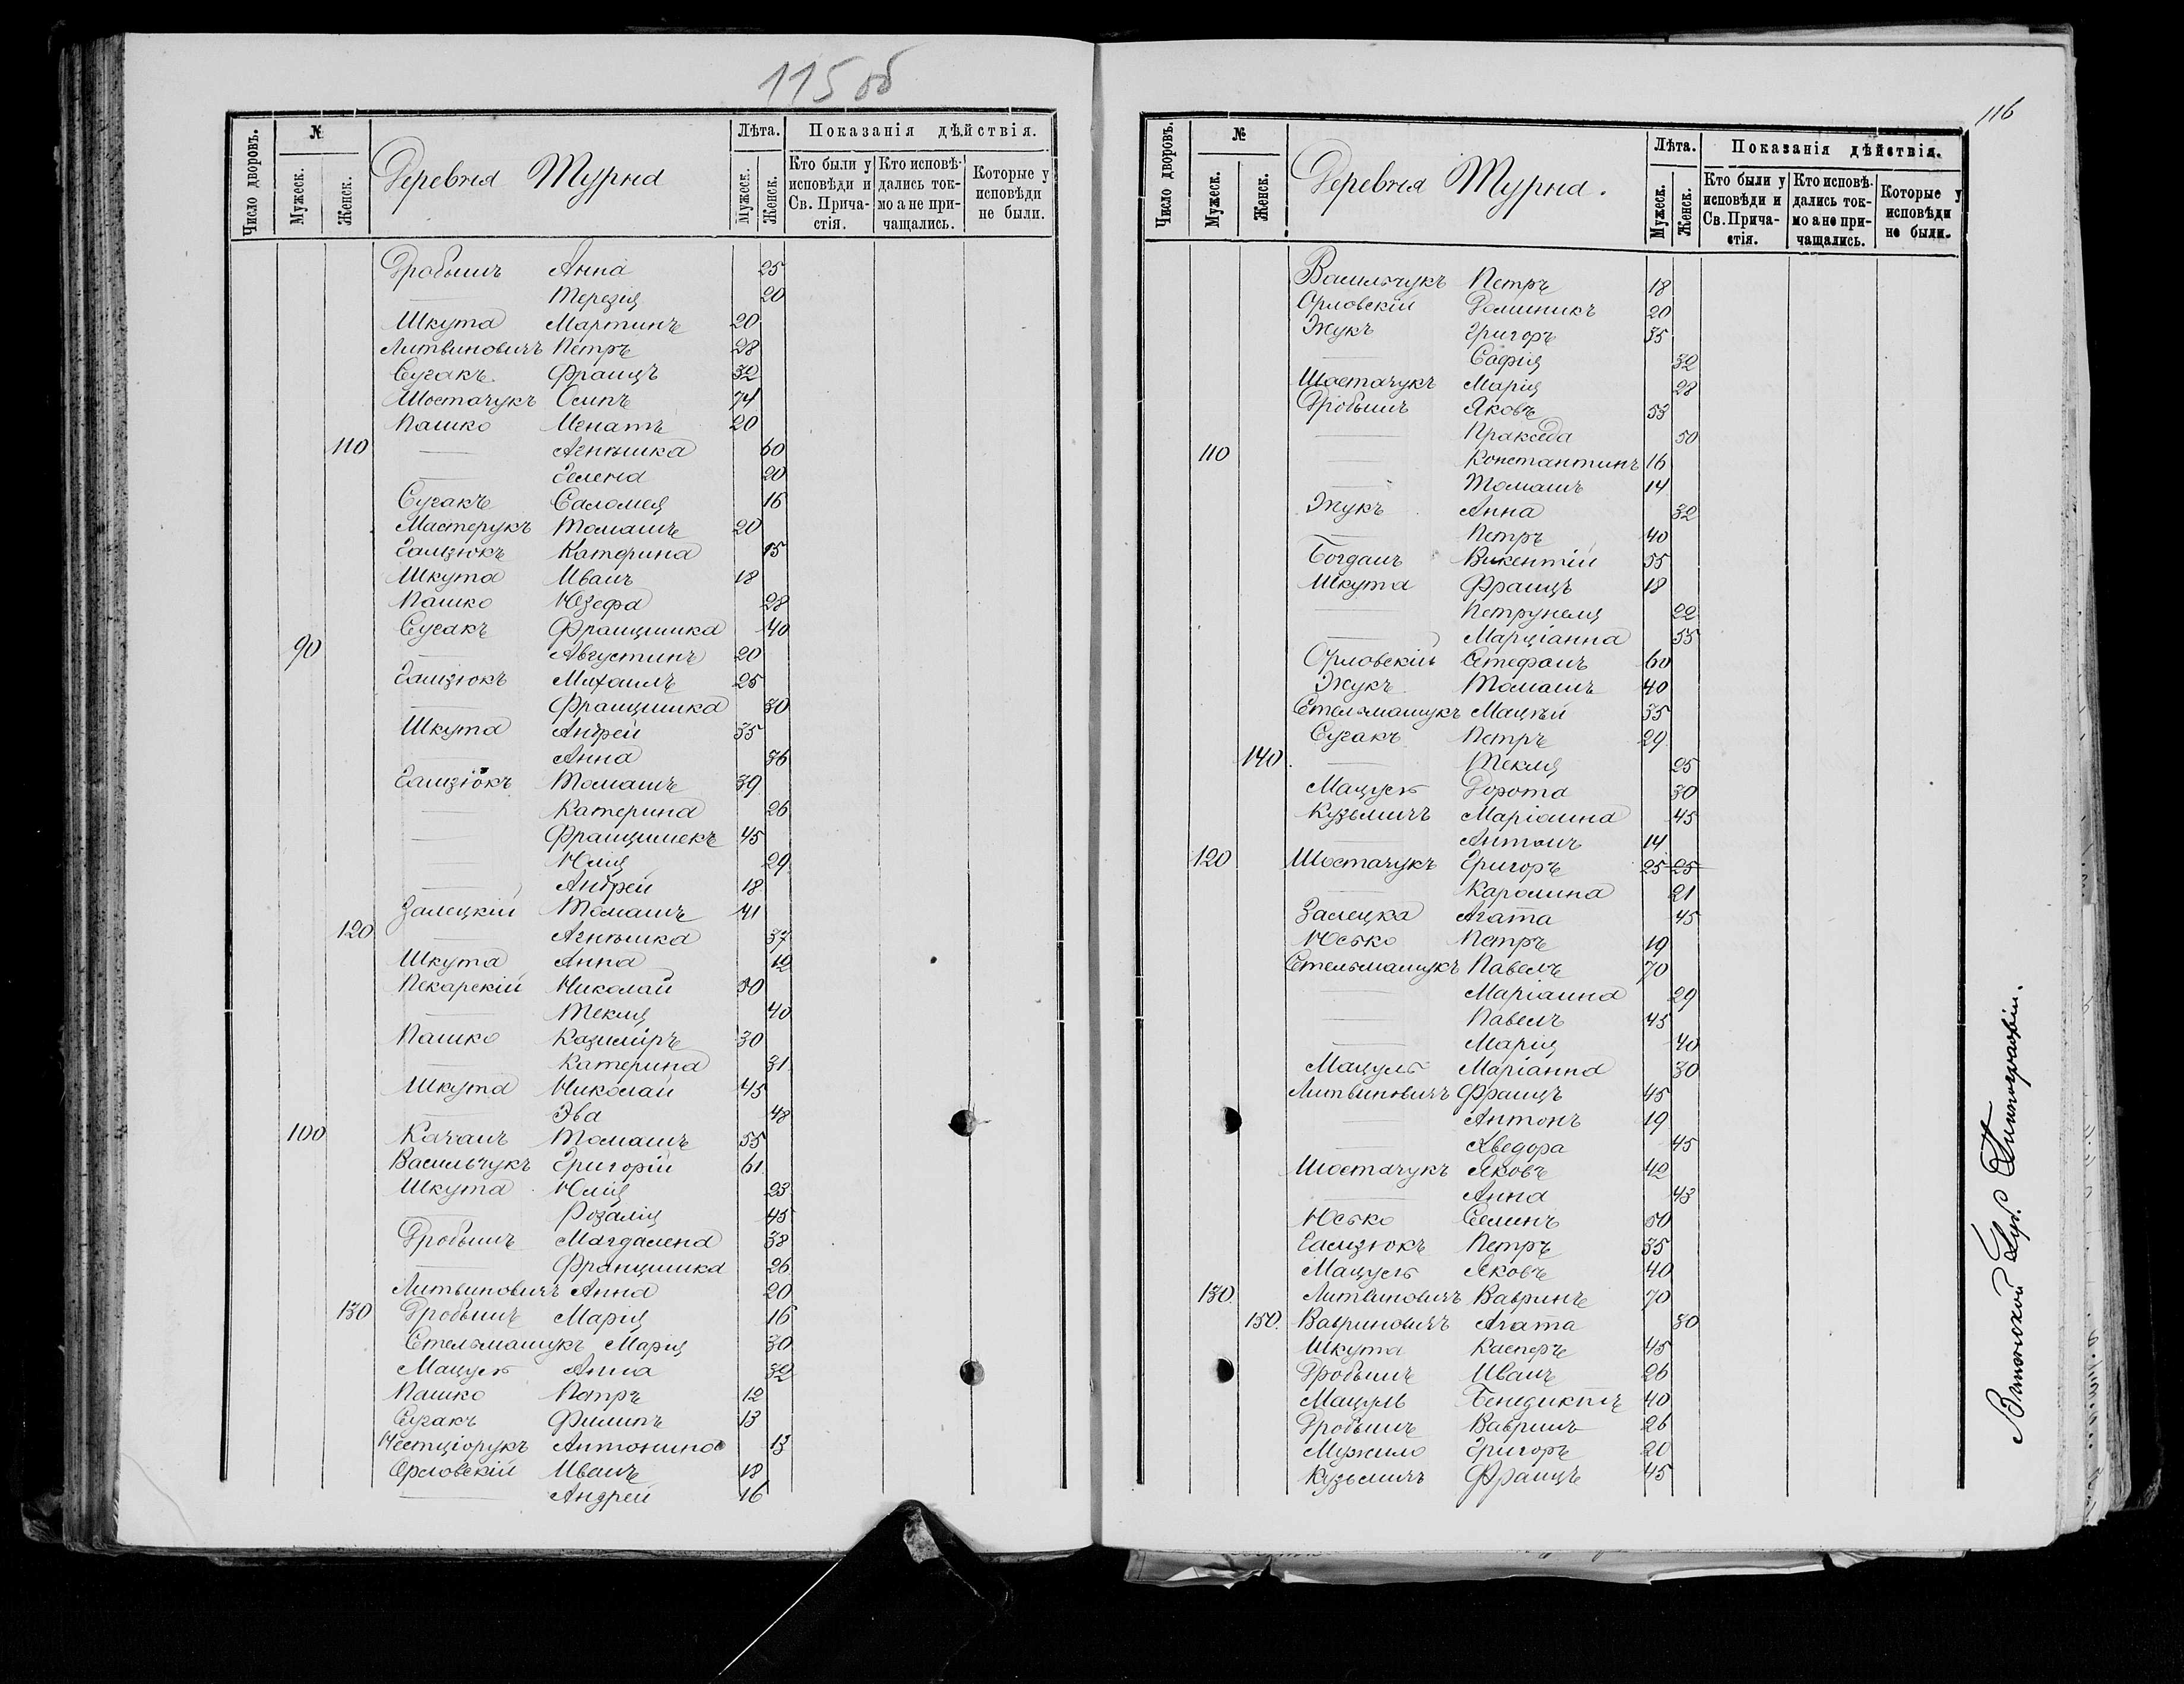 115 об
Число дворовъ. № Лѣта. Показанія дѣйствія.
Мужеск. Женск. Деревня Турна Мужеск. Женск. Кто были у исповѣди и Св. Прича-стія. Кто исповѣ-дались ток-мо а не при-чащались. Которые у исповѣди не были.
Дробышъ Анна 25
— Терезія 20
Шкута Мартинъ 20
Литвиновичъ Петръ 28
Сугакъ Францъ 32
Шостачукъ Осипъ 74
Пашко Игнатъ 20
110 — Агнѣшка 60
— Гелена 20
Сугакъ Саломея 16
Мастерукъ Томашъ 20
Гализюкъ Катерина 15
Шкута Иванъ 18
Пашко Юзефа 28
Сугакъ Францишка 40
90 — Августинъ 20
Гализюкъ Михаилъ 25
— Францишка 30
Шкута Андрей 35
— Анна 36
Гализюкъ Томашъ 39
— Катерина 26
— Францишекъ 45
— Юлія 29
— Андрей 18
Залецкій Томашъ 41
120 — Агнѣшка 37
Шкута Анна 12
Пекарскій Николай 50
— Текля 40
Пашко Казимиръ 30
— Катерина 31
Шкута Николай 45
— Эва 48
100 Качанъ Томашъ 55
Васильчукъ Григорій 61
Шкута Юлія 23
— Розалія 45
Дробышъ Магдалена 38
— Францишка 26
Литвиновичъ Анна 20
130 Дробышъ Марія 16
Стельмашукъ Марія 30
Мацуль Анна 32
Пашко Петръ 12
Сугакъ Филипъ 13
Нестціорукъ Антонина 13
Орловскій Иванъ 18
— Андрей 16
116
Число дворовъ. № Лѣта. Показанія дѣйствія.
Мужеск. Женск. Деревня Турна. Мужеск. Женск. Кто были у исповѣди и Св. Прича-стія. Кто исповѣ-дались ток-мо а не при-чащались. Которые у исповѣди не были.
Васильчукъ Петръ 18
Орловскій Доминикъ 20
Жукъ Григоръ 35
— Софія 32
Шостачукъ Марія 28
Дробышъ Яковъ 53
— Праксeда 50
110 — Константинъ 16
— Томашъ 14
Жукъ Анна 32
— Петръ 40
Богданъ Викентій 55
Шкута Францъ 18
— Петрунеля 22
— Марціанна 55
Орловскій Стефанъ 60
Жукъ Томашъ 40
Стельмашукъ Мацѣй 35
Сугакъ Петръ 29
140 — Текля 25
Мацуль Дорота 30
Кузьмичъ Маріанна 45
— Антонъ 14
120 Шостачукъ Григоръ 25 25
— Каролина 21
Залецка Агата 45
Юсько Петръ 19
Стельмашукъ Павелъ 70
— Маріанна 29
— Павелъ 45
— Марія 40
Мацуль Маріанна 30
Литвиновичъ Францъ 45
— Антонъ 19
— Хведора 45
Шостачукъ Яковъ 42
— Анна 43
Юсько Семинъ 50
Гализюкъ Петръ 35
Мацуль Яковъ 40
130. Литвиновичъ Вавринъ 70
150. Вавриновичъ Агата 30
Шкута Касперъ 45
Дробышъ Иванъ 26
Мацуль Бенедиктъ 40
Дробышъ Вавринъ 26
Мужило Григоръ 20
Кузьмичъ Францъ 45
Губ. Типографіи.